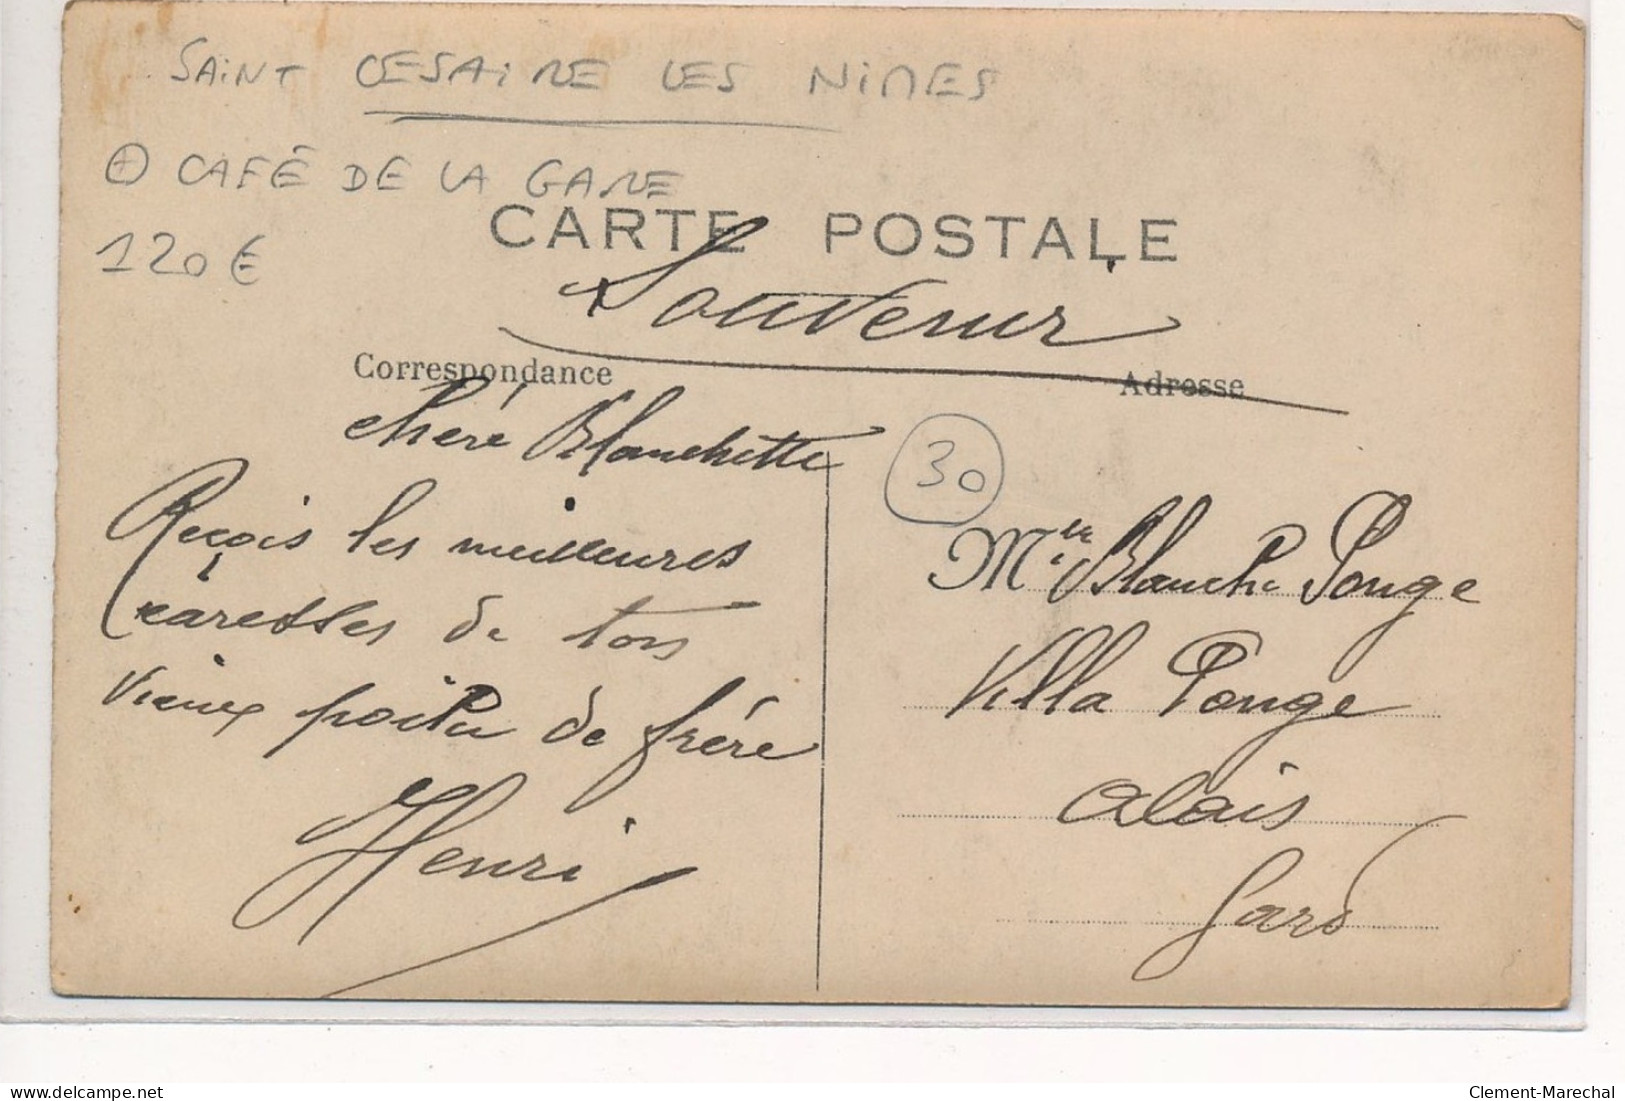 SAINT CESAIRE LES NIMES
+ CAFÉ DE LA GARE
120€
CARTE POSTALE
Souvenir
Correspondance
Adresse
chère Blanchette
Reçois les meilleures
caresses de ton
vieux poilu de frére
Henri
30
Mlle Blanche Ponge
Villa Ponge
Alais
Gard
delcampe.net
Clement-Marechal